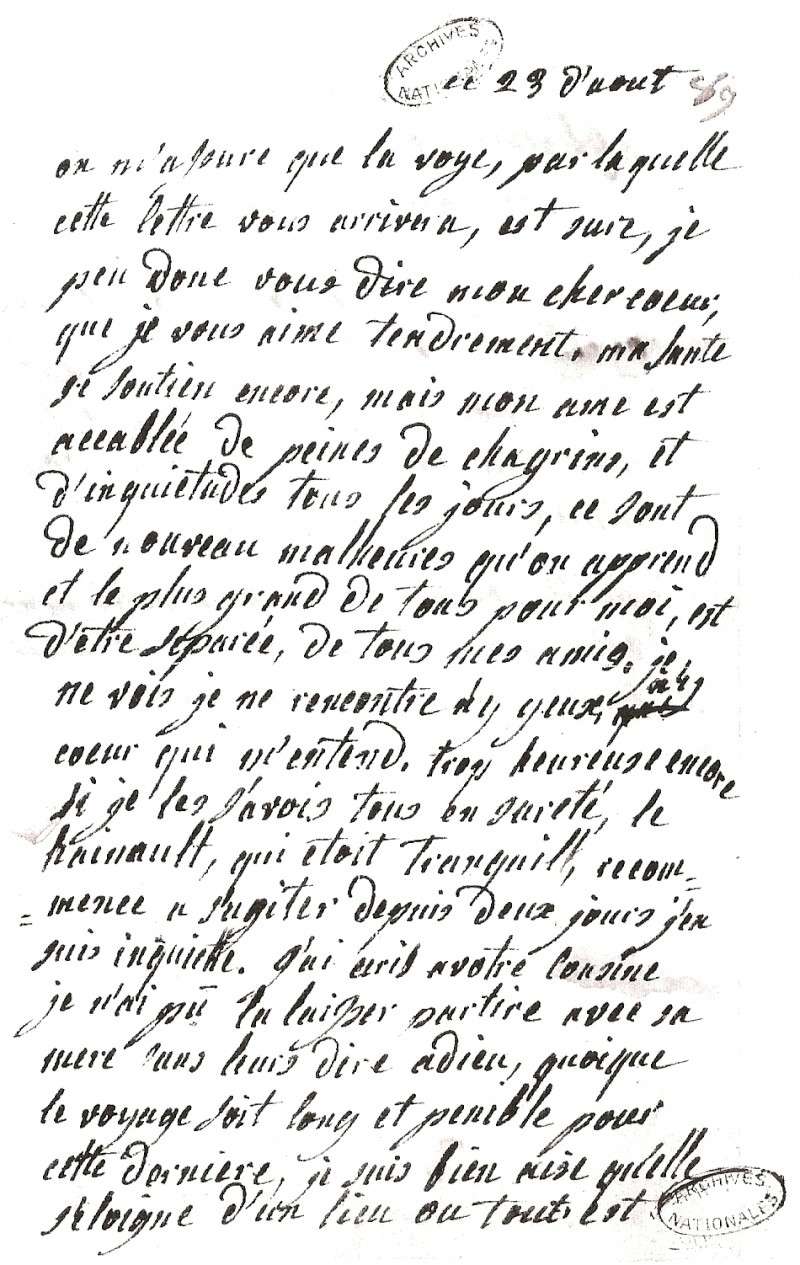 ARCHIVES
NATIONALES
ce 23 d'aout 89
on m'assure que la voye, par laquelle
cette lettre vous arrivera, est sure, je
peu donc vous dire mon cher coeur,
que je vous aime tendrement. ma santé
se soutien encore, mais mon ame est
accablée de peines de chagrins, et
d'inquiétudes tous les jours, ce sont
de nouveau malheures qu'on apprend
et le plus grand de tous pour moi, est
d'être separée, de tous mes amis. je
ne vois je ne rencontre ny yeux, ny
coeur qui m'entend. trop heureuse encore
si je les s'avois tous en sureté, le
hainault, qui étoit tranquill, recom=
=mence a s'agiter depuis deux jours j'en
suis inquiette. j'ai écrit a votre cousine
je n'ai pû la laisser partire avec sa
mere sans leurs dire adieu, quoique
le voyage soit long et penible pour
cette derniere, je suis bien aise qu'elle
s'eloigne d'un lieu ou tout est
ARCHIVES
NATIONALES